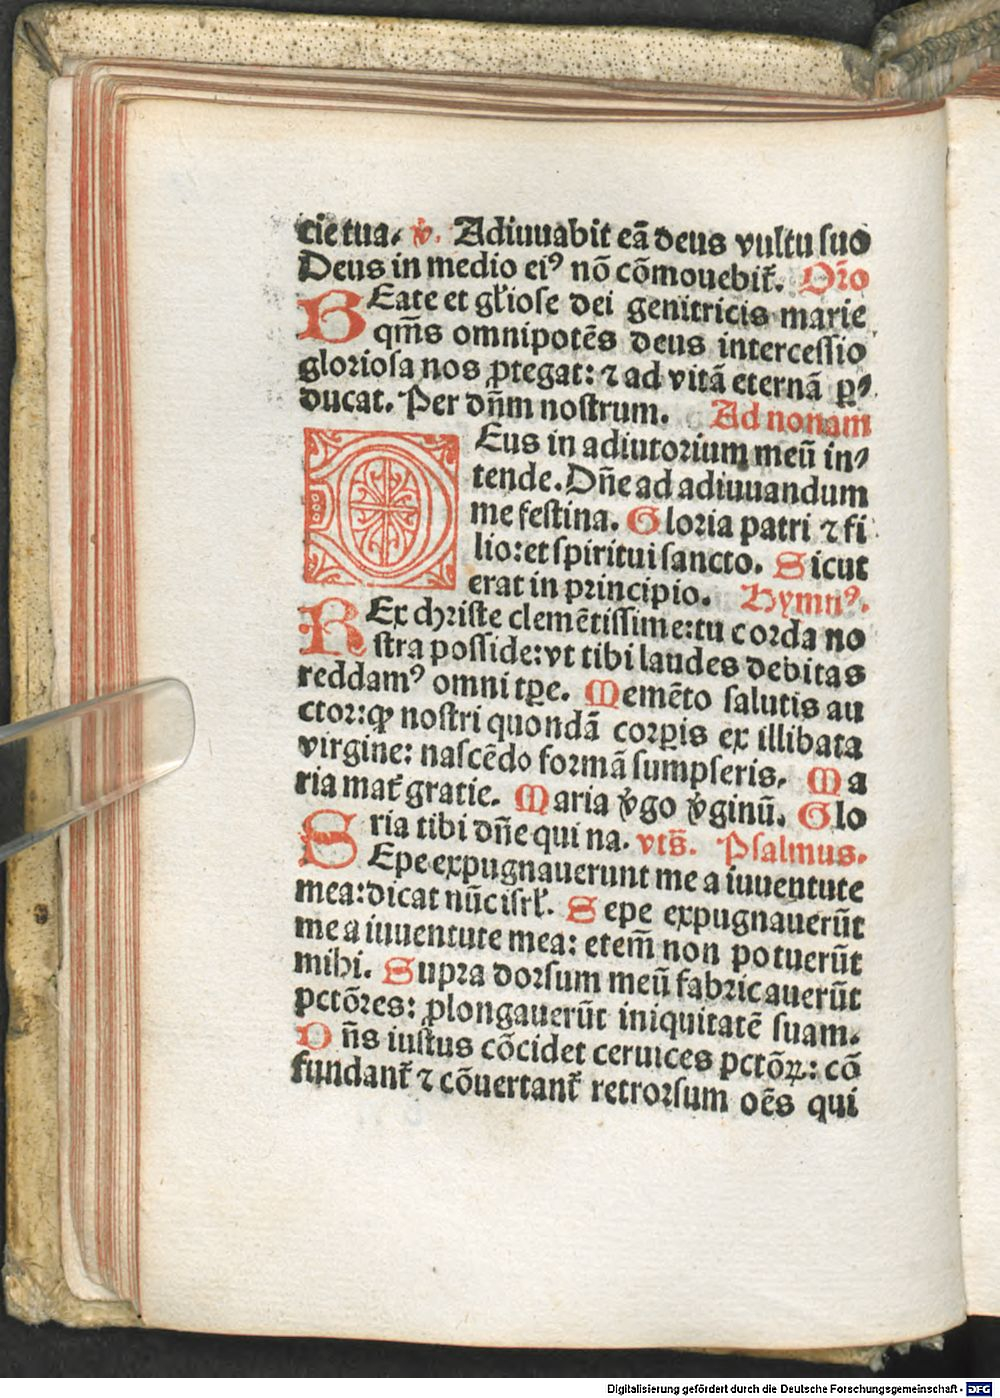 cie tua. v̇. Adiuuabit eã deus vultu suo
Deus in medio eiꝰ nõ cõmouebit᷑. Or̃o
BEate et gl̃iose dei genitricis marie
qm̃s omnipotẽs deus intercessio
gloriosa nos ꝓtegat: ⁊ ad vitã eternã ꝑ⸗
ducat. Per dñm nostrum. Ad nonam
DEus in adiutorium meũ in⸗
tende. Dñe ad adiuuandum
me festina. Gloria patri ⁊ fi
lio: et spiritui sancto. Sicut
erat in principio. Hymnꝰ.
REx christe clemẽtissime: tu corda no
stra posside: vt tibi laudes debitas
reddamꝰ omni tꝑe. Memẽto salutis au
ctor: ꝙ nostri quondã corꝑis ex illibata
virgine: nascẽdo formã sumpseris. Ma
ria mat᷑ gratie. Maria v̓go v̓ginũ. Glo
ria tibi dñe qui na. vts̃. Psalmus.
SEpe expugnauerunt me a iuuentute
mea: dicat nũc isrl̓. Sepe expugnauerũt
me a iuuentute mea: etem̃ non potuerũt
mihi. Supra dorsum meũ fabricauerũt
pctõres: ꝓlongauerũt iniquitatẽ suam.
Dñs iustus cõcidet ceruices pctõꝝ: cõ
fundant᷑ ⁊ cõuertant᷑ retrorsum oẽs qui
Digitalisierung gefördert durch die Deutsche Forschungsgemeinschaft - DFG